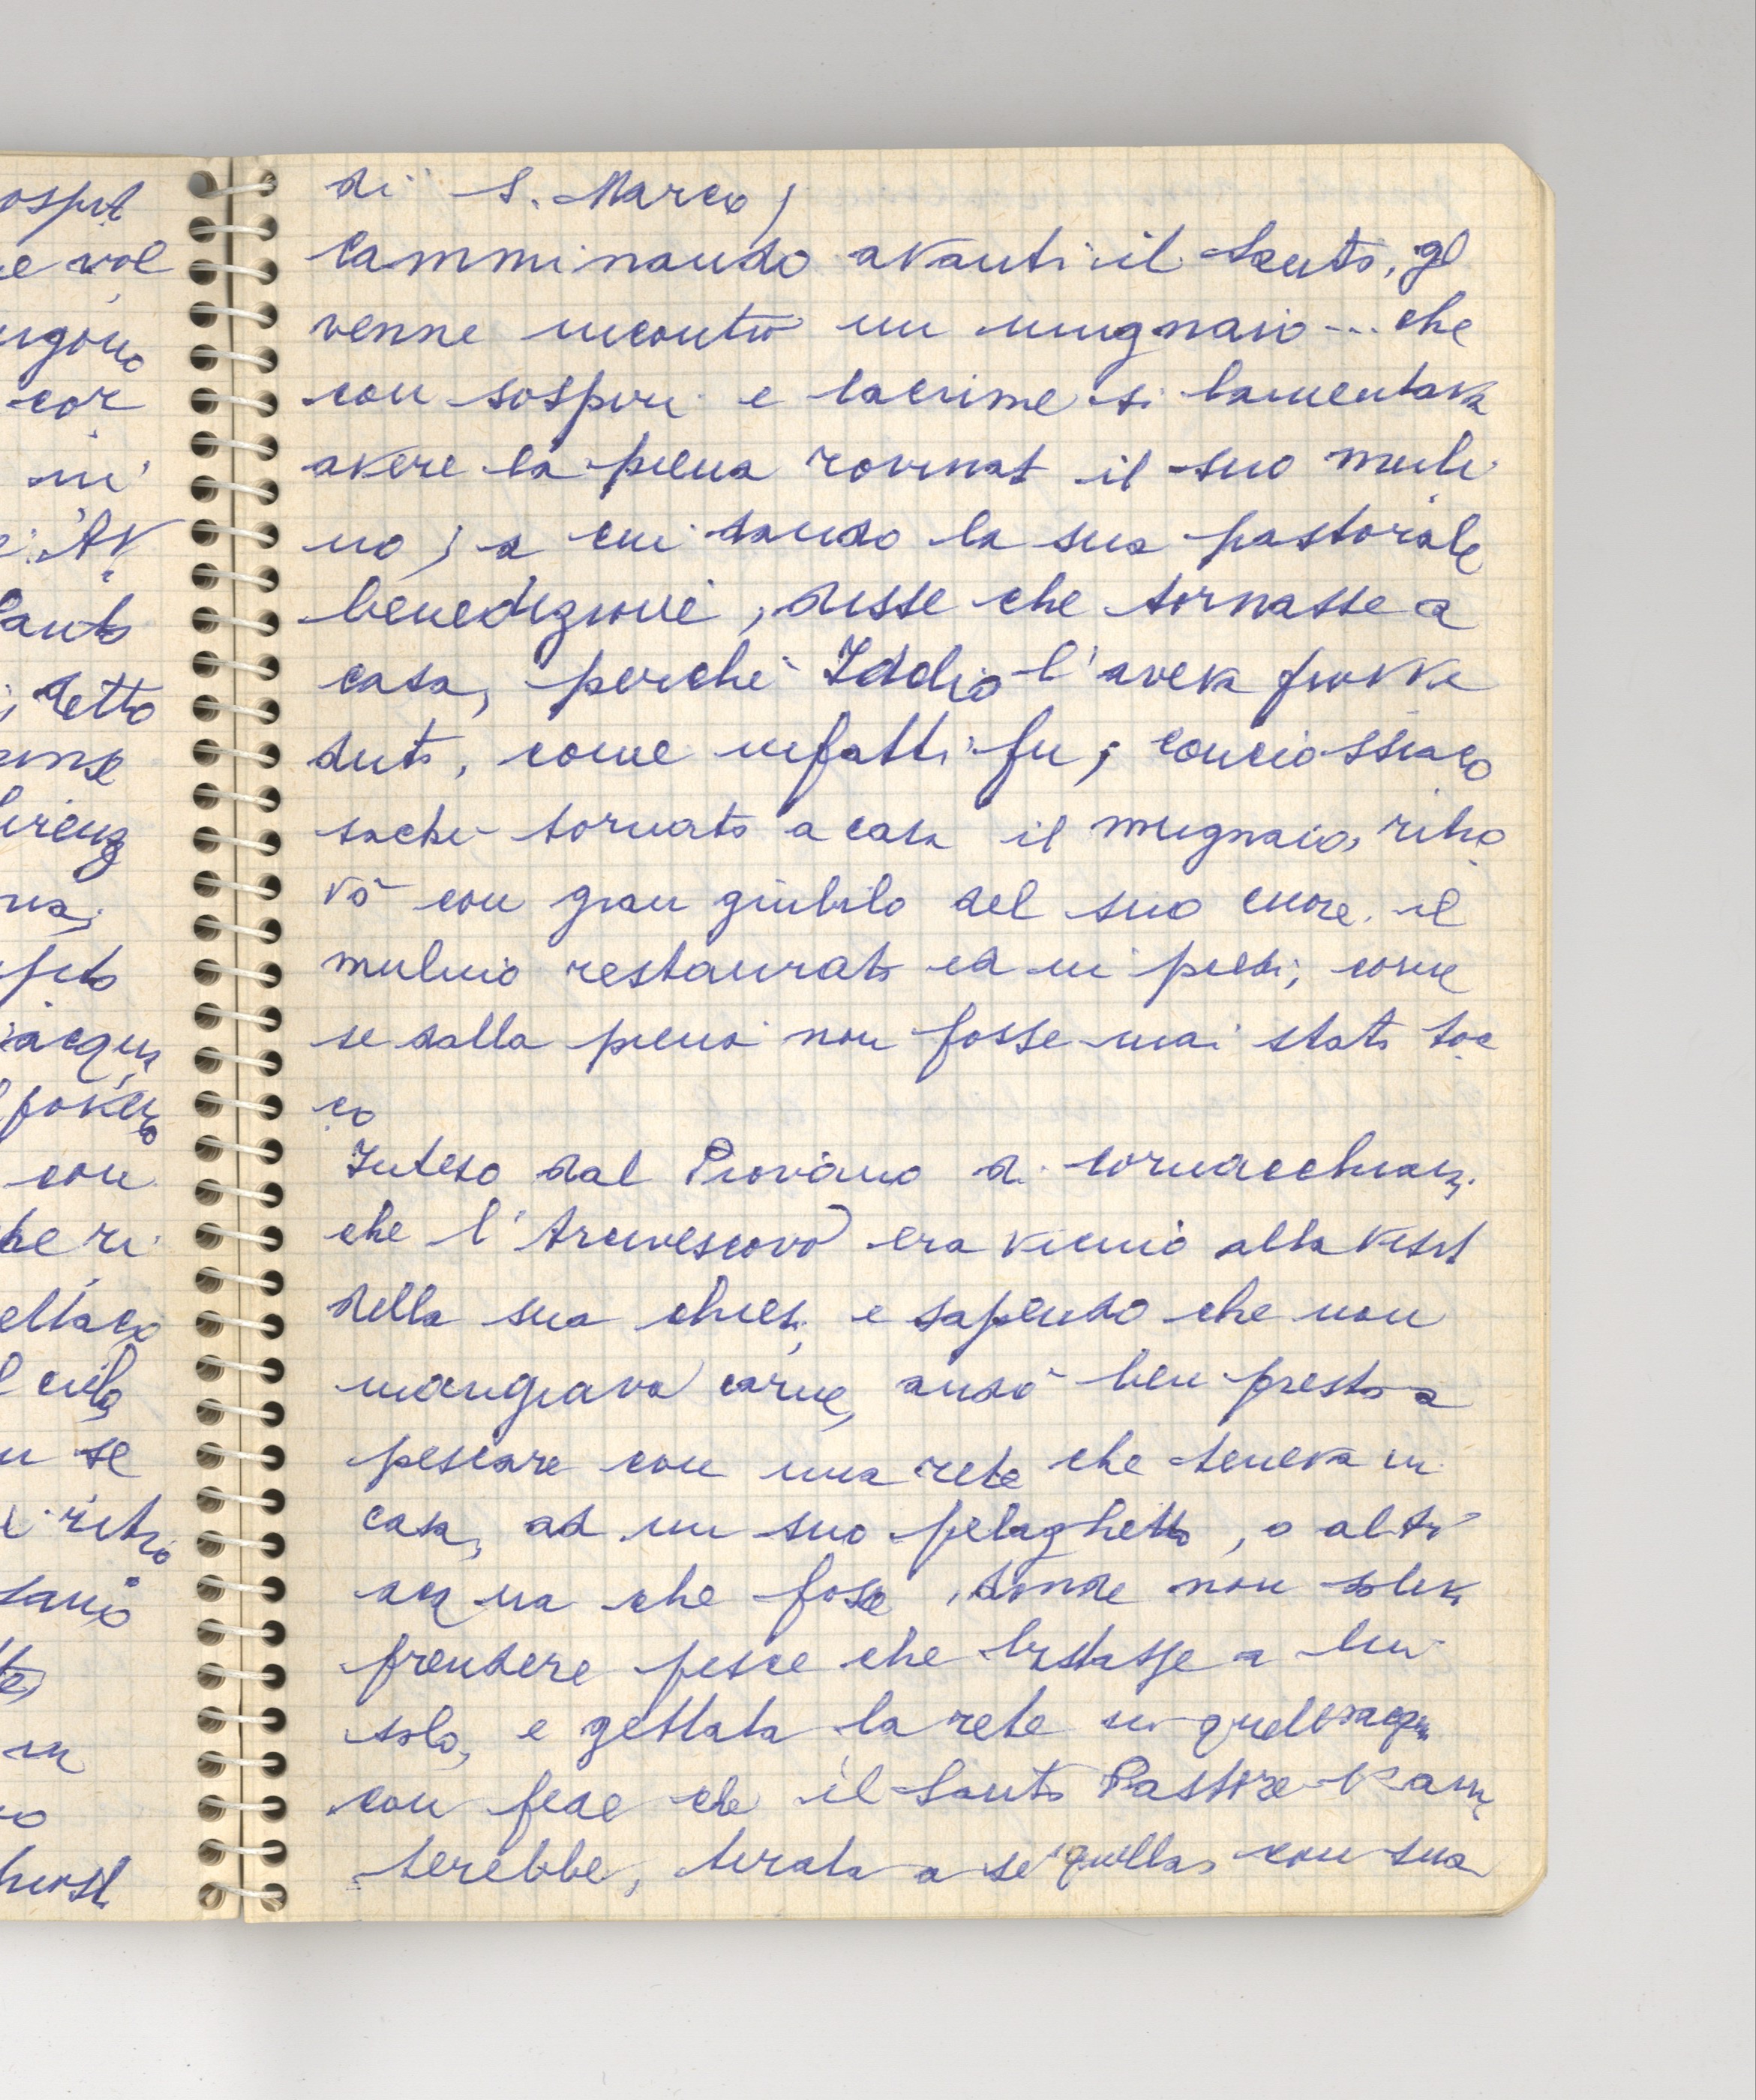 di S. Marco)
Camminando avanti il Santo, gl
venne incontro un mugnaio ... che
con sospiri e lacrime si lamentava
avere la piena rovinat il suo muli
no; a cui dando la sua pastorale
benedizione, disse che tornasse a
casa, perchè Iddio l'aveva provve
duto, come infatti fu; conciossiaco
sachè tornato a casa il mugnaio, ritro
vò con gran giubilo del suo cuore il
mulino restaurato ed in piedi, come
se dalla piena non fosse mai stato toc
co
Inteso dal Piovano di Cornacchiaia
che l'Arcivescovo era vicino alla visit
della sua chiesa, e sapendo che non
mangiava carne, andò ben presto a
pescare con una rete che teneva in
casa, ad un suo pelaghetto, o altr
acqua che fosse, donde non soleva
prendere pesce che bastasse a lui
solo, e gettata la rete in quell'acqua
con fede che il Santo Pastore
terebbe, tirata a sè quella, con sua
ospit
e vol
cor
in
Santo
detto
acqua
con
he ri
se
ritro
in